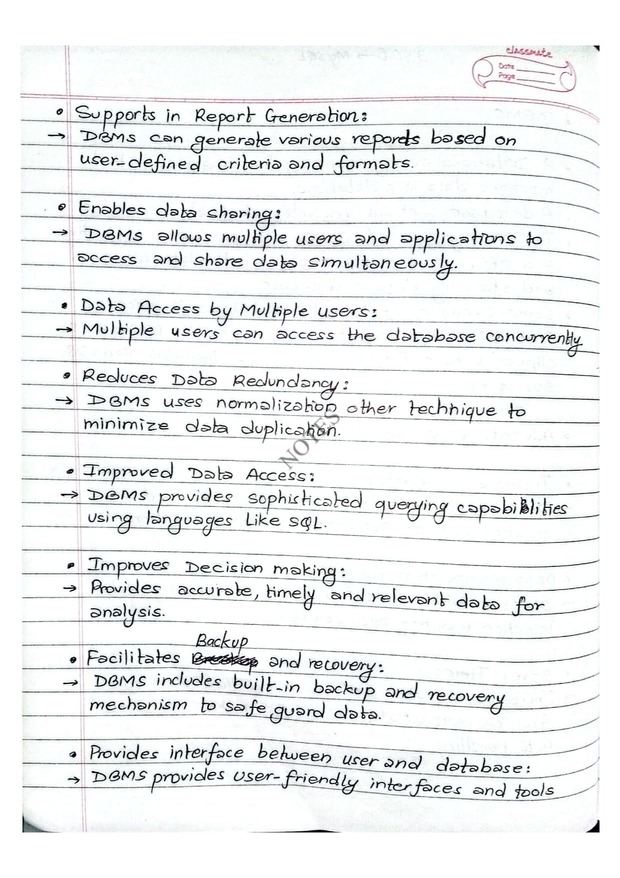 classmate
Date
Page
• Supports in Report Generation:
→ DBMS can generate various reports based on
user-defined criteria and formats.
• Enables data sharing:
→ DBMS allows multiple users and applications to
access and share data simultaneously.
• Data Access by Multiple users:
→ Multiple users can access the database concurrently
• Reduces Data Redundancy:
→ DBMS uses normalization other technique to
minimize data duplication.
NOTES
• Improved Data Access:
→ DBMS provides sophisticated querying capabilities
using languages Like SQL.
• Improves Decision making:
→ Provides accurate, timely and relevant data for
analysis.
• Facilitates Backup and recovery:
→ DBMS includes built-in backup and recovery
mechanism to safe guard data.
• Provides interface between user and database:
→ DBMS provides user-friendly interfaces and tools